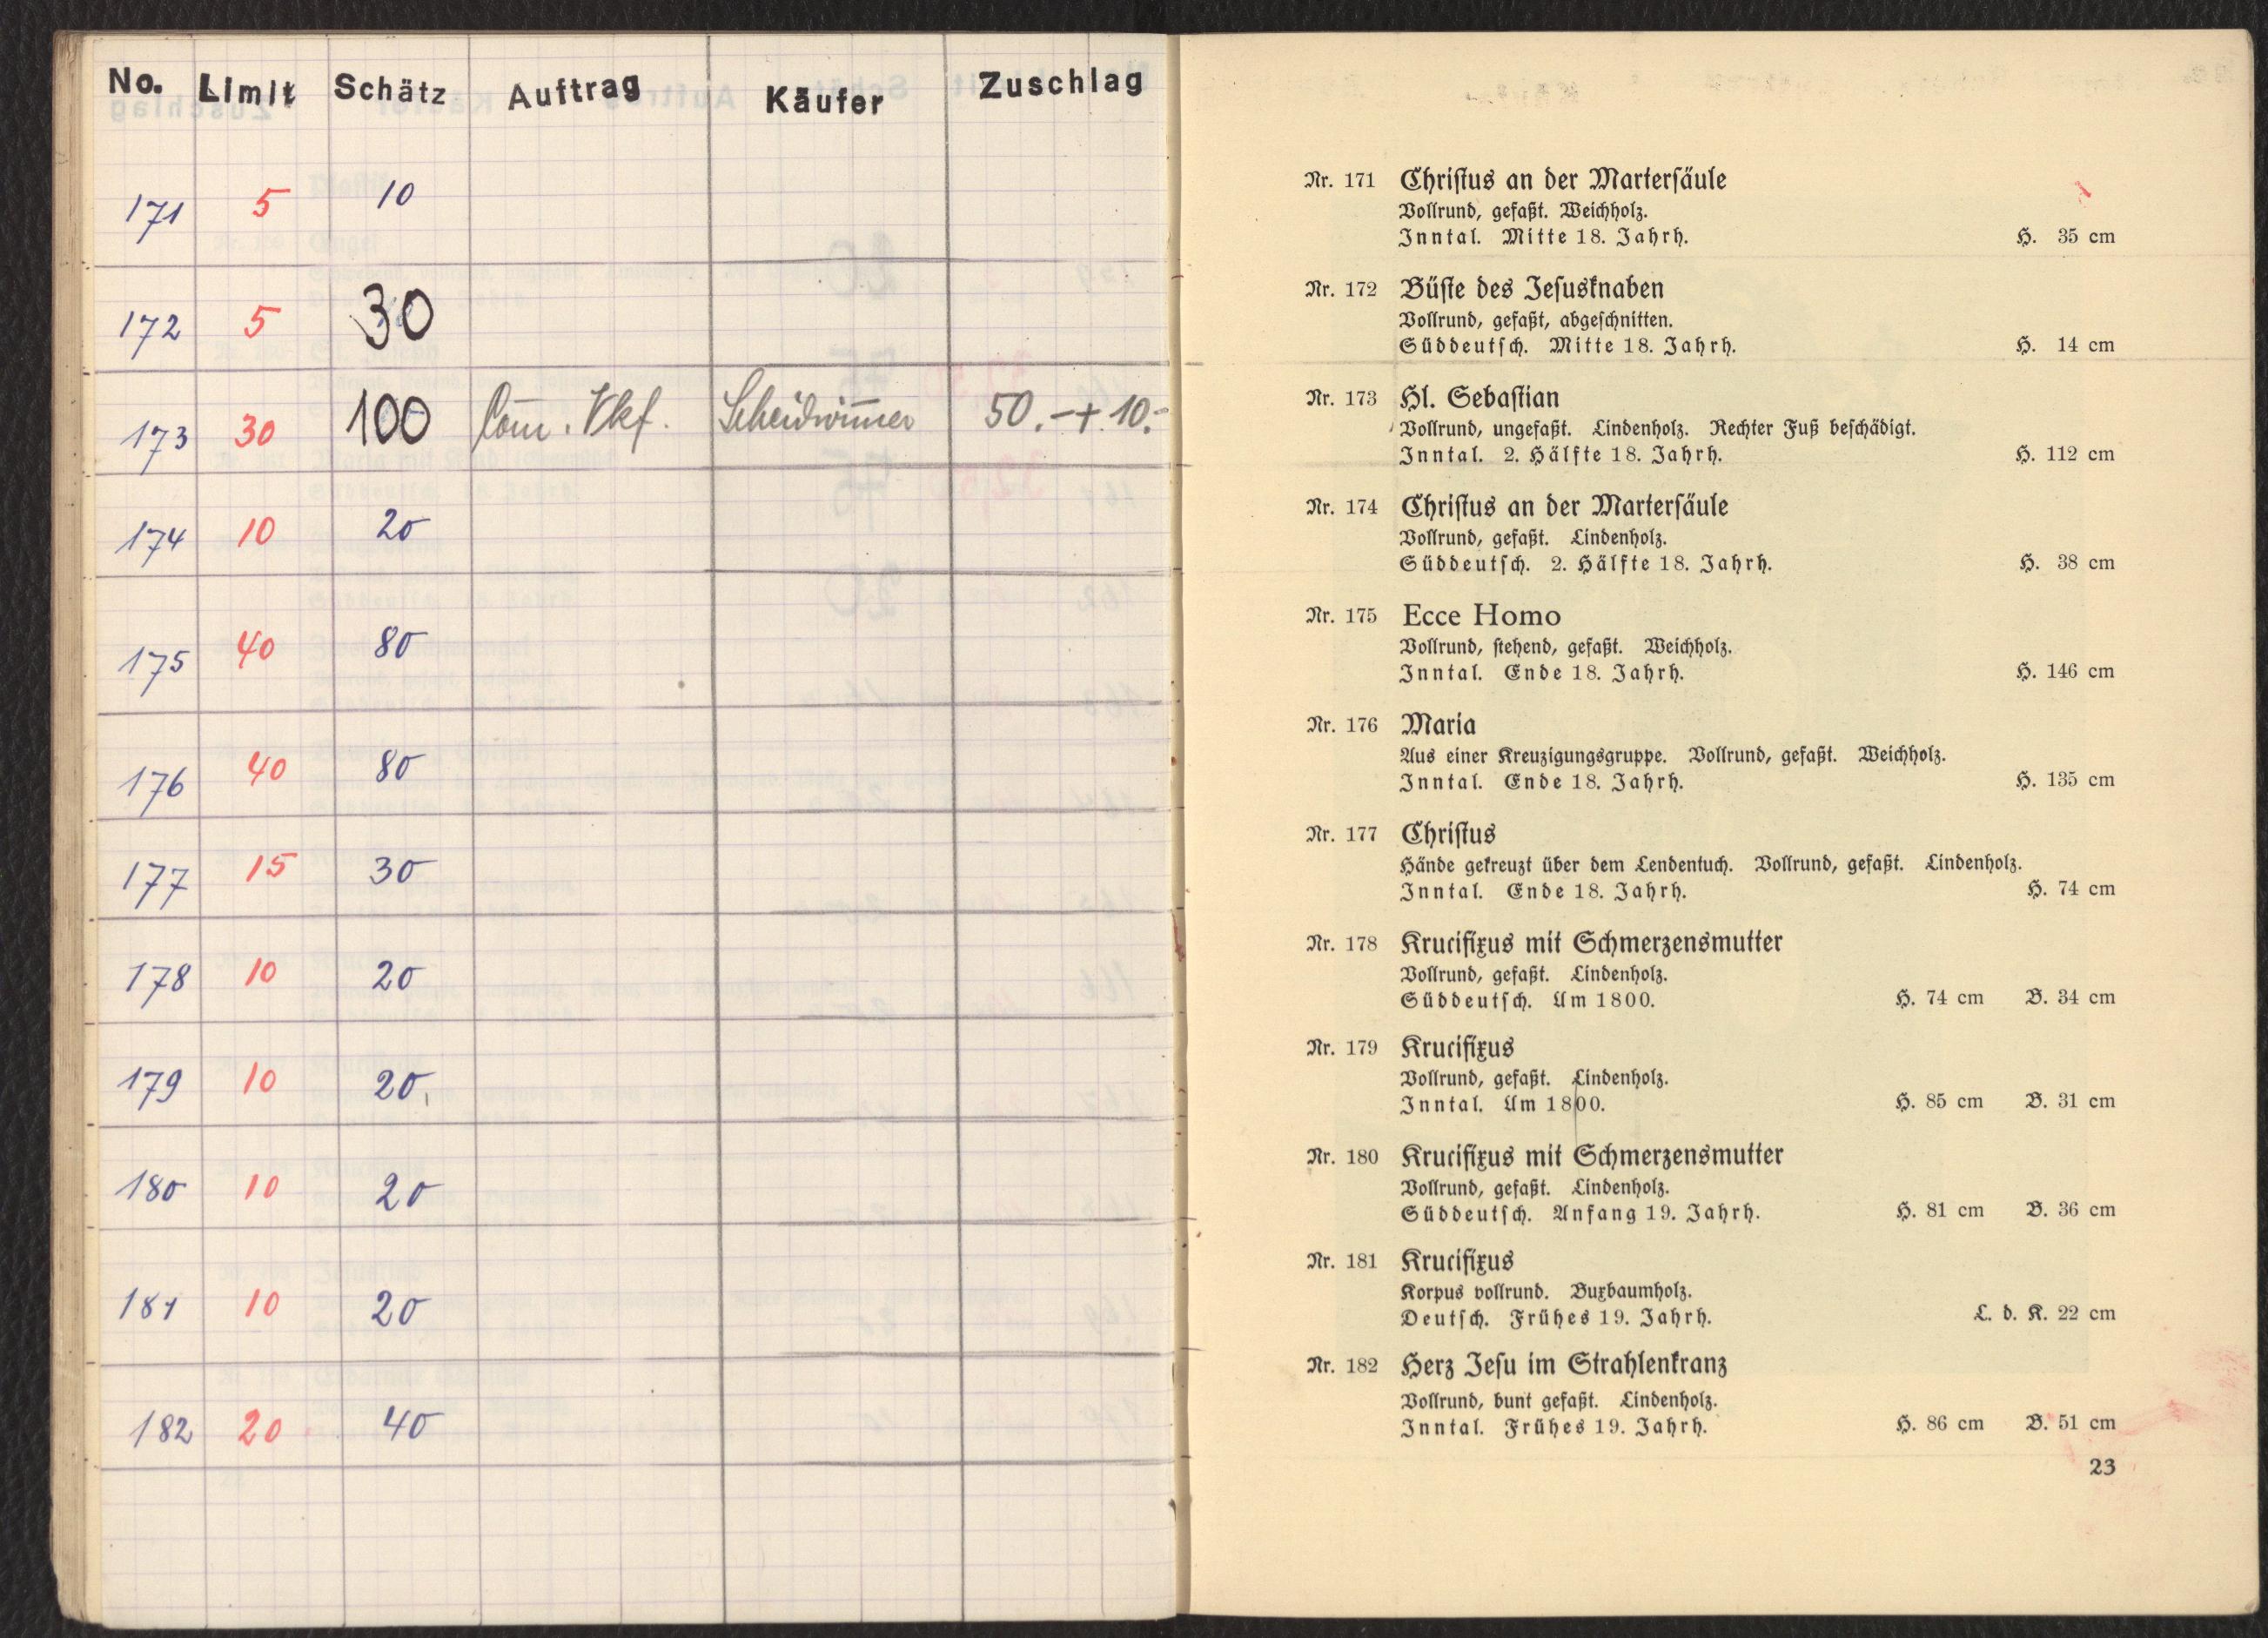 No. Limit Schätz Auftrag Käufer Zuschlag
171 5 10
172 5 30
173 30 100 Com. Vkf. Scheidwimmer 50.- + 10.-
174 10 20
175 40 80
176 40 80
177 15 30
178 10 20
179 10 20
180 10 20
181 10 20
182 20 40
Nr. 171 Christus an der Martersäule
Vollrund, gefaßt. Weichholz.
Inntal. Mitte 18. Jahrh. H. 35 cm
Nr. 172 Büste des Jesusknaben
Vollrund, gefaßt, abgeschnitten.
Süddeutsch. Mitte 18. Jahrh. H. 14 cm
Nr. 173 Hl. Sebastian
Vollrund, ungefaßt. Lindenholz. Rechter Fuß beschädigt.
Inntal. 2. Hälfte 18. Jahrh. H. 112 cm
Nr. 174 Christus an der Martersäule
Vollrund, gefaßt. Lindenholz.
Süddeutsch. 2. Hälfte 18. Jahrh. H. 38 cm
Nr. 175 Ecce Homo
Vollrund, stehend, gefaßt. Weichholz.
Inntal. Ende 18. Jahrh. H. 146 cm
Nr. 176 Maria
Aus einer Kreuzigungsgruppe. Vollrund, gefaßt. Weichholz.
Inntal. Ende 18. Jahrh. H. 135 cm
Nr. 177 Christus
Hände gekreuzt über dem Lendentuch. Vollrund, gefaßt. Lindenholz.
Inntal. Ende 18. Jahrh. H. 74 cm
Nr. 178 Krucifixus mit Schmerzensmutter
Vollrund, gefaßt. Lindenholz.
Süddeutsch. Um 1800. H. 74 cm B. 34 cm
Nr. 179 Krucifixus
Vollrund, gefaßt. Lindenholz.
Inntal. Um 1800. H. 85 cm B. 31 cm
Nr. 180 Krucifixus mit Schmerzensmutter
Vollrund, gefaßt. Lindenholz.
Süddeutsch. Anfang 19. Jahrh. H. 81 cm B. 36 cm
Nr. 181 Krucifixus
Korpus vollrund. Buxbaumholz.
Deutsch. Frühes 19. Jahrh. L. d. K. 22 cm
Nr. 182 Herz Jesu im Strahlenkranz
Vollrund, bunt gefaßt. Lindenholz.
Inntal. Frühes 19. Jahrh. H. 86 cm B. 51 cm
23